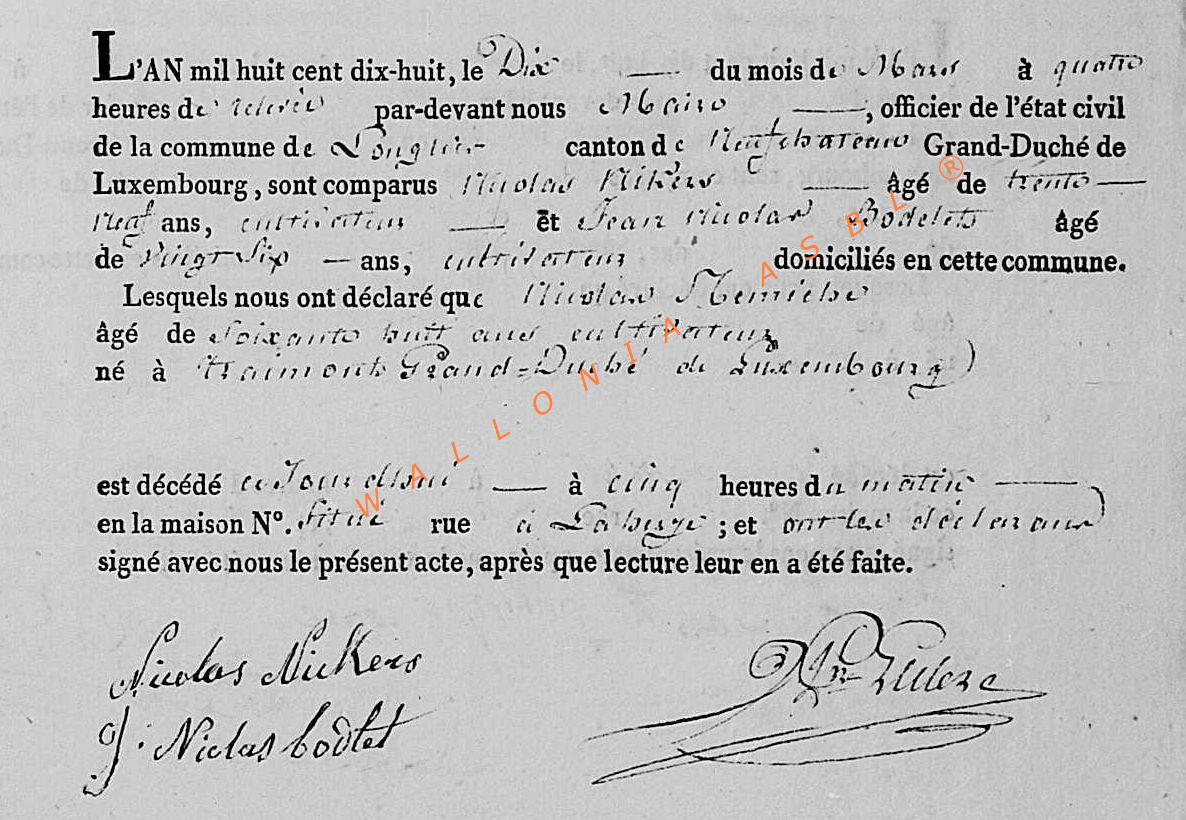 L'AN mil huit cent dix-huit, le Dix du mois de Mars à quatre
heures de relevée par-devant nous Maire, officier de l'état civil
de la commune de Longlier canton de Neufchateau Grand-Duché de
Luxembourg, sont comparus Nicolas Nikers âgé de trente
neuf ans, cultivateur et Jean Nicolas Bodelets âgé
de vingt Six ans, cultivateur domiciliés en cette commune.
Lesquels nous ont déclaré que Nicolas
âgé de Soixante huit ans cultivateur
né à traimont Grand-Duché de Luxembourg
est décédé ce Jourdhui à cinq heures du matin
en la maison N°. Situé rue à ; et ont les déclarans
signé avec nous le présent acte, après que lecture leur en a été faite.
Nicolas Nickers
J. Nicolas bodlet
WALLONIA ASBL ®